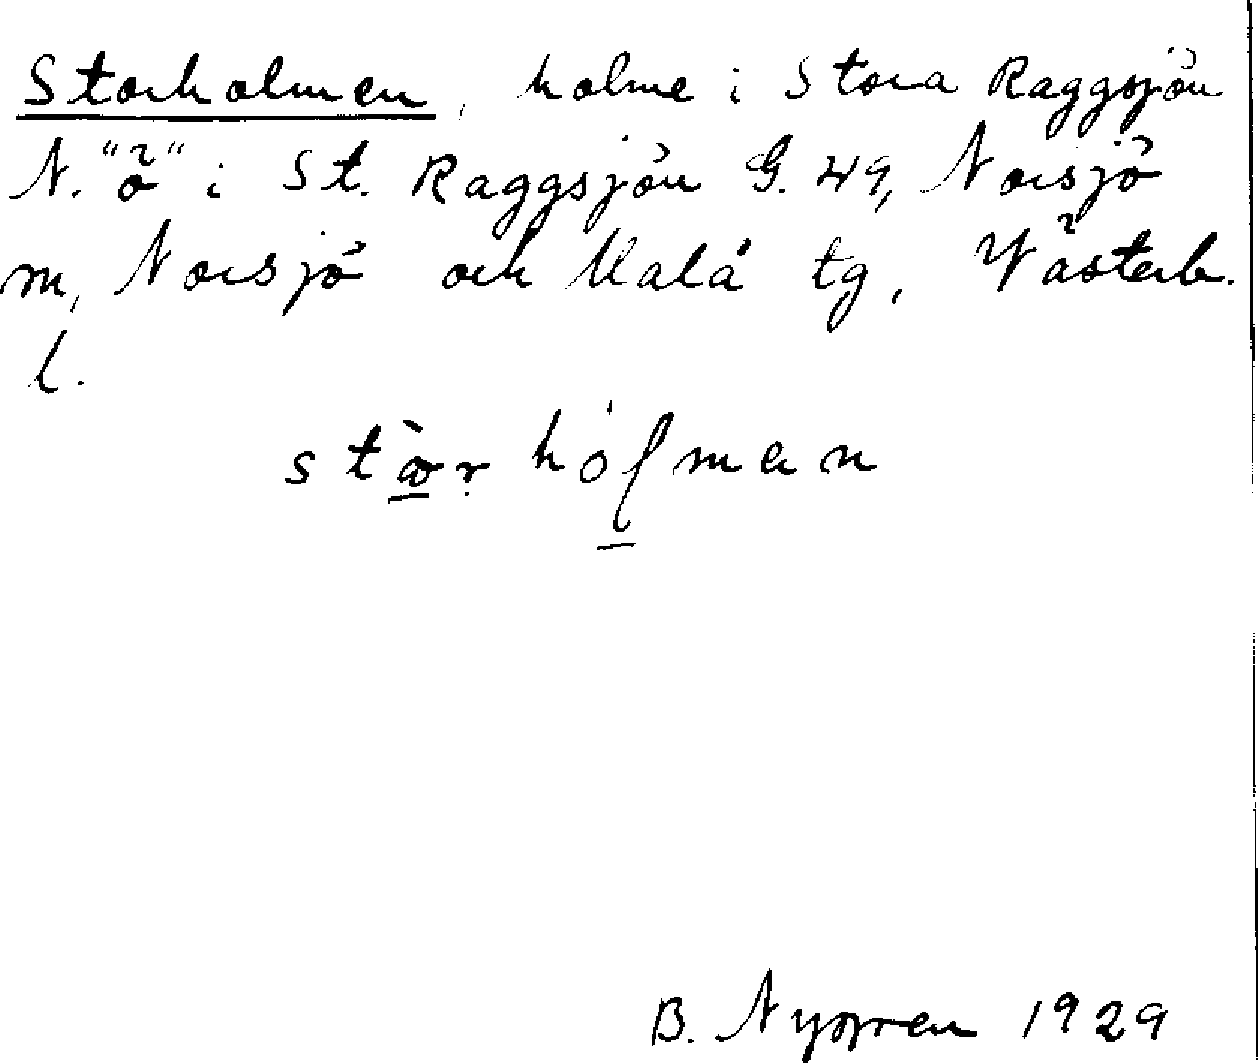 Storholmen, holme i Stora Raggsjön
N. "ö" i St. Raggsjön G. 49, Norsjö
m, Norsjö och Malå tg, Västerb.
l.
B. Nygren 1929